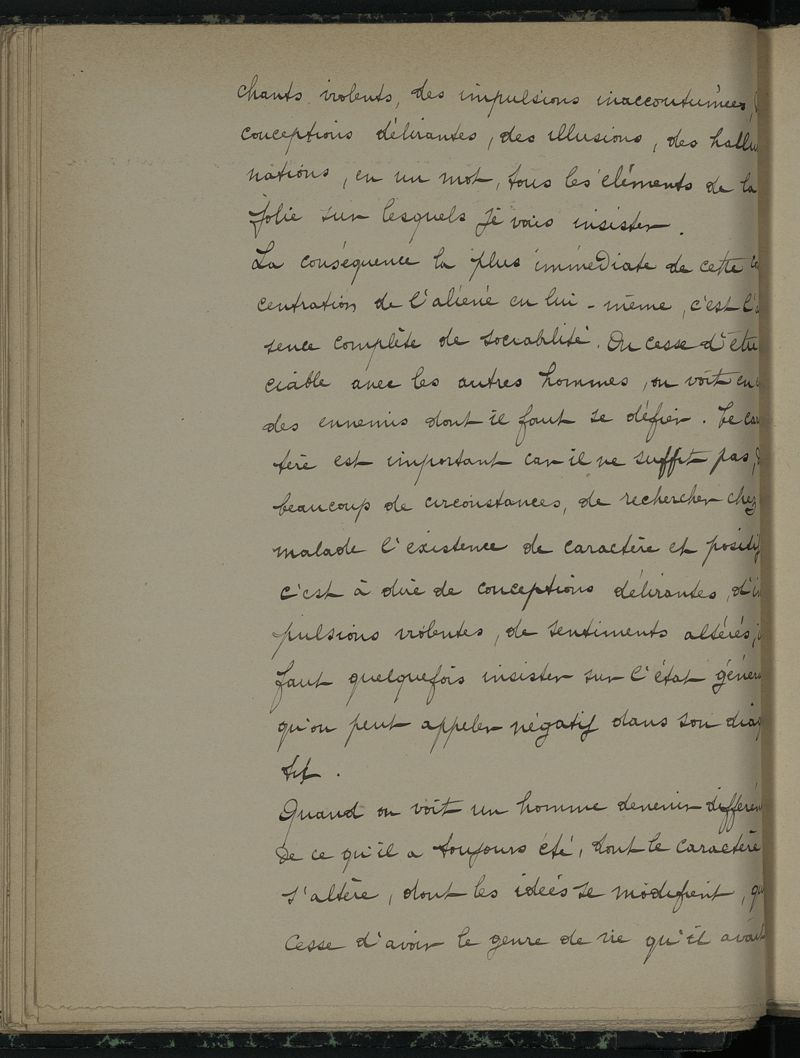 chants violents, des impulsions inaccoutumées,
conceptions délirantes, des illusions, des hallu
nations, en un mot, tous les éléments de la
folie sur lesquels je vais insister.
La conséquence la plus immédiate de cette
centration de l'aliéné en lui-même, c'est l'
sence complète de sociabilité. On cesse d'être
ciable avec les autres hommes, on voit en
des ennemis dont il faut se défier. Ce ca
tère est important car il ne suffit pas,
beaucoup de circonstances, de rechercher chez
malade l'existence de caractère et positif
c'est à dire de conceptions délirantes, d'im
pulsions violentes, de sentiments altérés,
faut quelquefois insister sur l'état géner
qu'on peut appeler négatif dans son diag
tif.
Quand on voit un homme devenir différen
de ce qu'il a toujours été, dont le caractère
s'altère, dont les idées se modifient, qu
cesse d'avoir le genre de vie qu'il avait